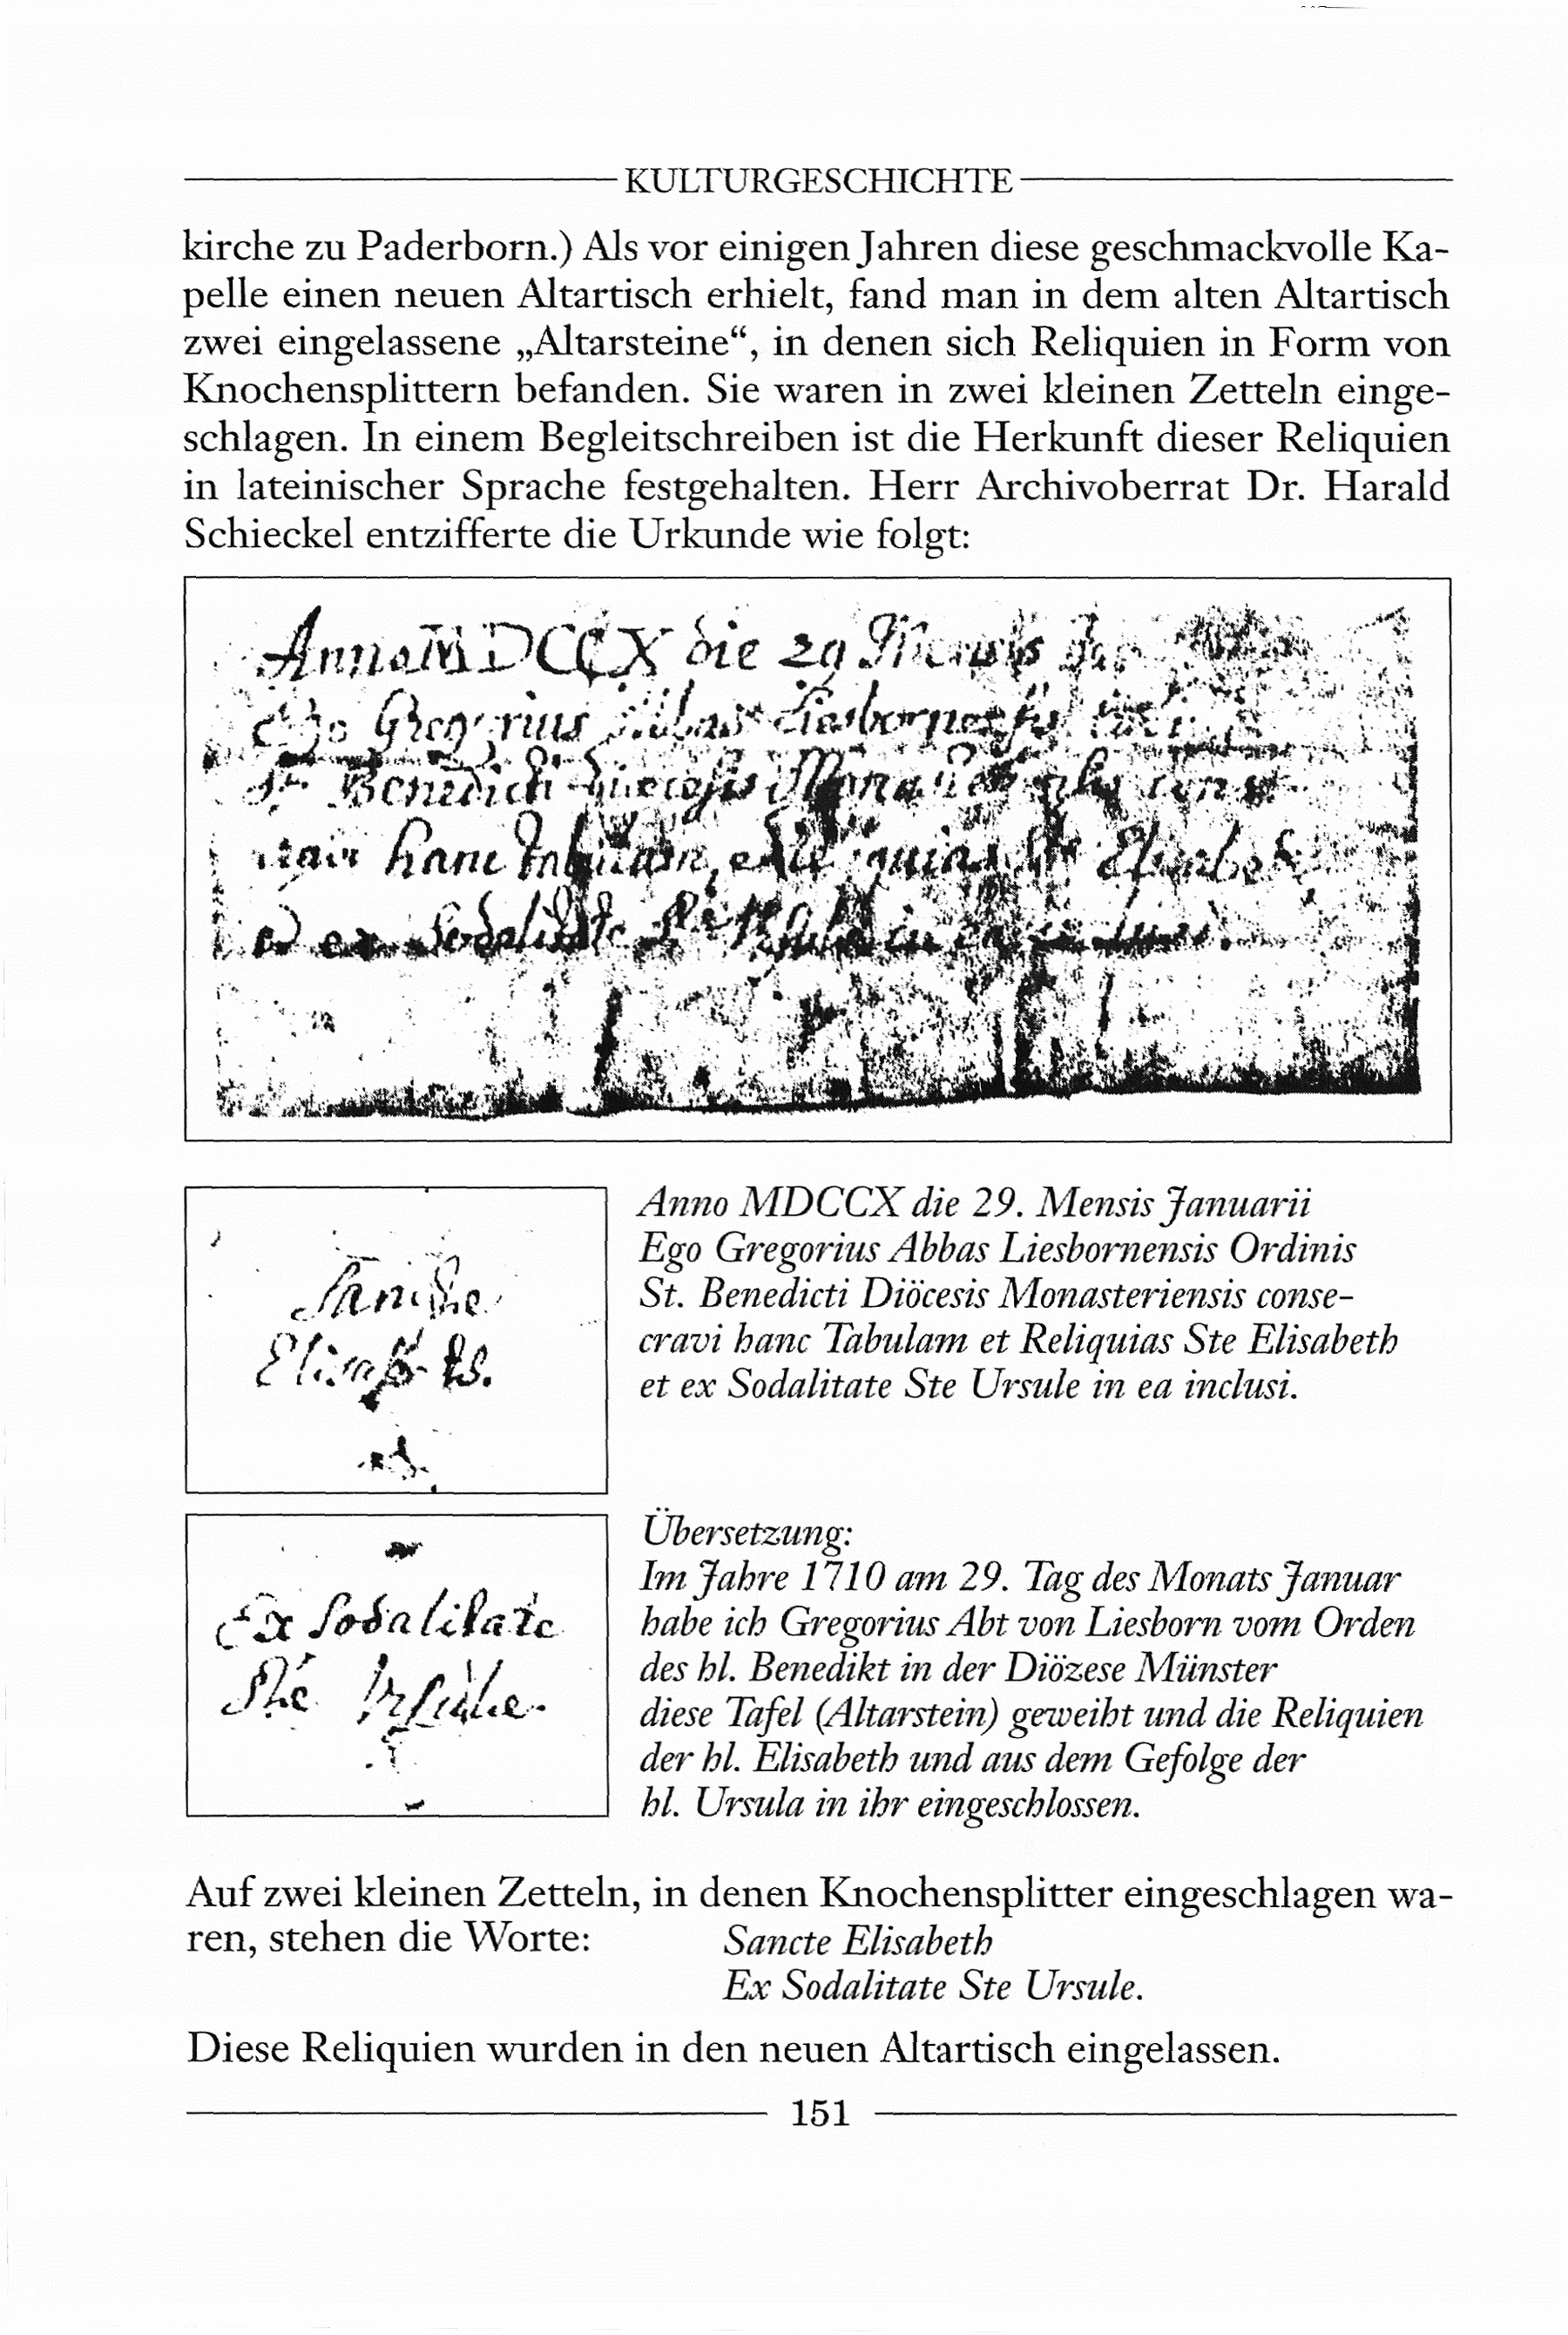 KULTURGESCHICHTE
kirche zu Paderborn.) Als vor einigen Jahren diese geschmackvolle Ka-
pelle einen neuen Altartisch erhielt, fand man in dem alten Altartisch
zwei eingelassene „Altarsteine“, in denen sich Reliquien in Form von
Knochensplittern befanden. Sie waren in zwei kleinen Zetteln einge-
schlagen. In einem Begleitschreiben ist die Herkunft dieser Reliquien
in lateinischer Sprache festgehalten. Herr Archivoberrat Dr. Harald
Schieckel entzifferte die Urkunde wie folgt:
Anno MDCCX die 29 Mensis
Ego Gregorius Abbas Liesbornensis
St Benedicti
hanc Tabulam, Elisabeth
et ex Sodalitate Ste in ea
Anno MDCCX die 29. Mensis Januarii
Ego Gregorius Abbas Liesbornensis Ordinis
St. Benedicti Diöcesis Monasteriensis conse-
cravi hanc Tabulam et Reliquias Ste Elisabeth
et ex Sodalitate Ste Ursule in ea inclusi.
Sancte
Übersetzung:
Im Jahre 1710 am 29. Tag des Monats Januar
habe ich Gregorius Abt von Liesborn vom Orden
des hl. Benedikt in der Diözese Münster
diese Tafel (Altarstein) geweiht und die Reliquien
der hl. Elisabeth und aus dem Gefolge der
hl. Ursula in ihr eingeschlossen.
Ex Sodalitate
Ste Ursule.
Auf zwei kleinen Zetteln, in denen Knochensplitter eingeschlagen wa-
ren, stehen die Worte: Sancte Elisabeth
Ex Sodalitate Ste Ursule.
Diese Reliquien wurden in den neuen Altartisch eingelassen.
151